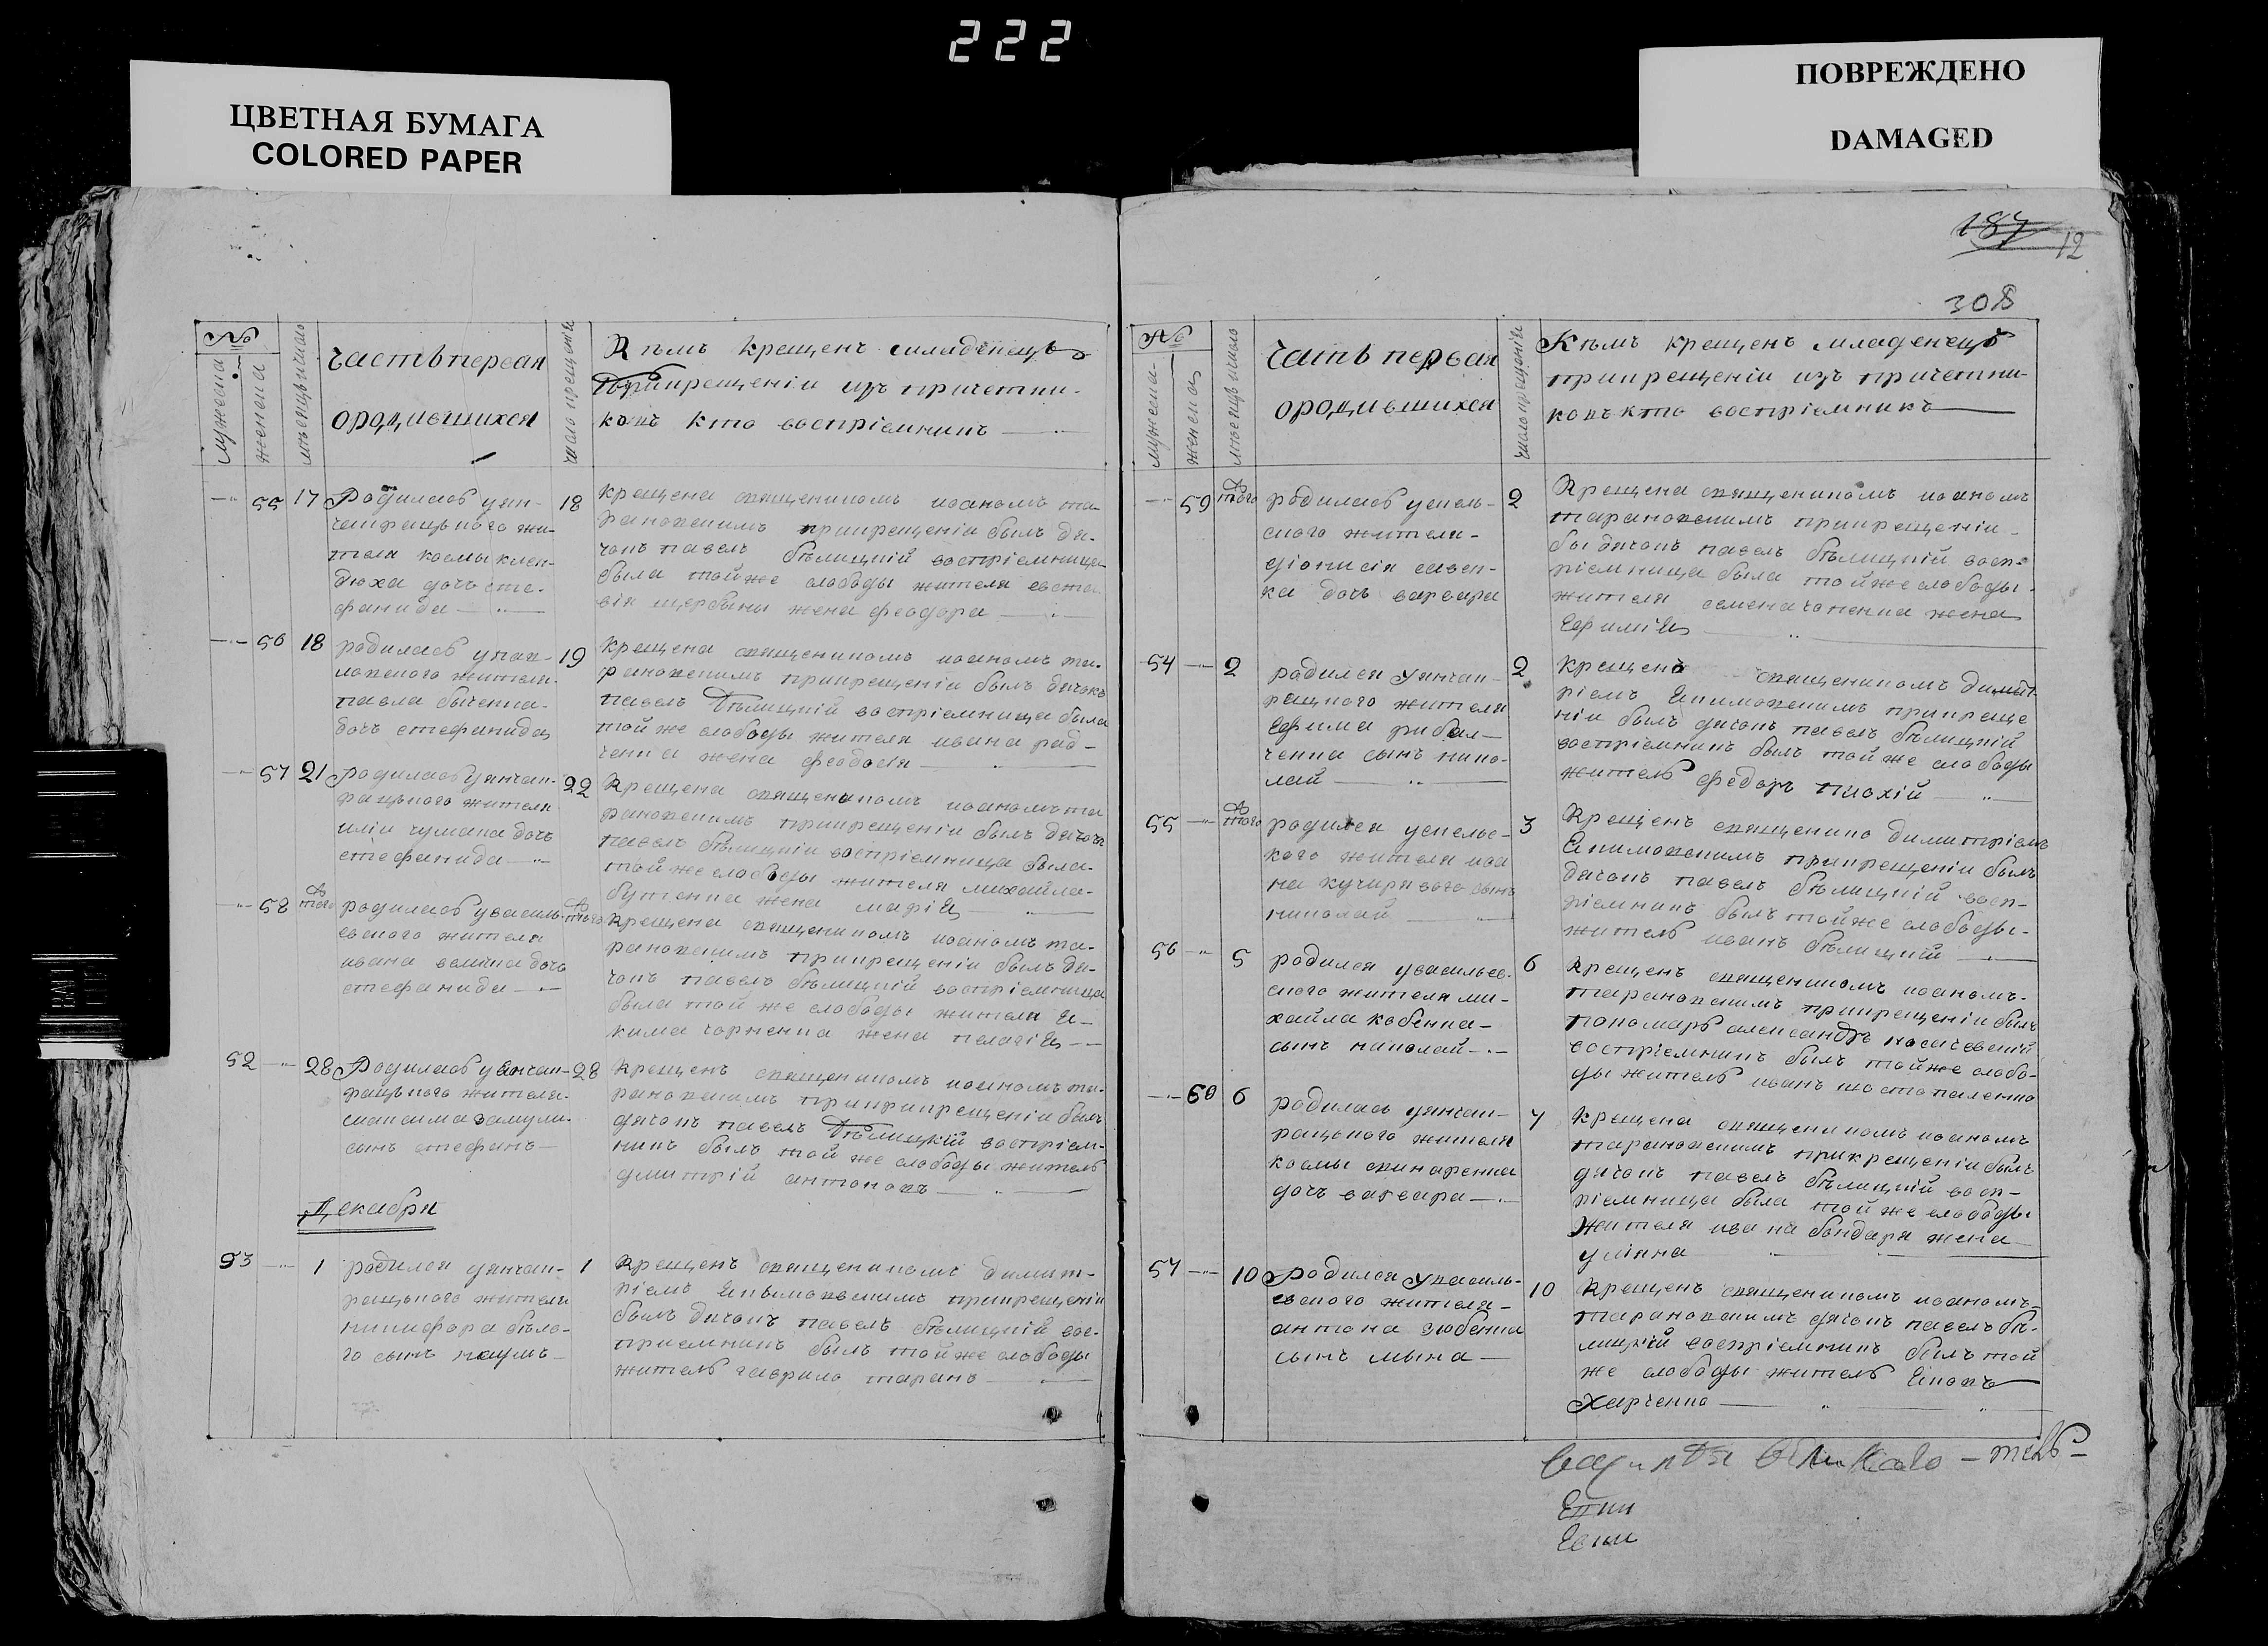 222
ЦВЕТНАЯ БУМАГА
COLORED PAPER
ПОВРЕЖДЕНО
DAMAGED
187
12
308
№
мужеска
женска
месяцъ и число
часть первая
о родившихся
число крещения
Кѣмъ крещенъ младенецъ
при крещеніи изъ причетни-
ковъ кто воспріемникъ
55 17 Родилась у ян-
чакрацкого жи-
теля космы клен-
дюха дочь сте-
фанида
18 крещена священникомъ иоаномъ та-
рановскимъ при крещеніи былъ дя-
чокъ павелъ бѣлицкій воспріемница
была той же слободы жителя евста-
вія щербины жена феодора
56 18 родилась у пав-
ловского жителя
павла быченка
дочь стефанида
19 крещена священникомъ иоаномъ та-
рановскимъ при крещеніи былъ дячокъ
павелъ бѣлицкій воспріемница была
той же слободы жителя ивана рад-
ченка жена феодосія
57 21 родилась у янчак-
рацкого жителя
иліи чумака дочь
стефанида
22 Крещена священикомъ иоаномъ та
рановскимъ при крещеніи былъ дячокъ
павелъ бѣлицкій воспріемница была
той же слободы жителя михайла
бутенка жена марія
58 того родилась у василь-
евского жителя
ивана величка дочь
стефанида
того крещена священикомъ иоаномъ та-
рановскимъ при крещеніи былъ дя-
чокъ павелъ бѣлицкій воспріемница
была той же слободы жителя Я-
кима чорненка жена пелагія
52 28 Родилась у янчак-
рацкого жителя
максима замули
сынъ стефанъ
28 крещенъ священикомъ иоаномъ та-
рановскимъ при крещеніи былъ
дячокъ павелъ бѣлицкій воспріем-
никъ былъ той же слободы житель
дмитрій антоновъ
Декабря
53 1 родился у янчак-
рацкого жителя
никифора бѣло-
го сынъ наумъ
1 Крещенъ священикомъ димит-
ріемъ Якимовскимъ при крещеніи
былъ дячокъ павелъ бѣлицкій вос-
приемникъ былъ той же слободы
житель гаврило таранъ
№
мужеска
женска
месяцъ и число
Часть первая
о родившихся
число крещенія
Кѣмъ крещенъ младенецъ
при крещеніи изъ причетни-
ковъ кто воспріемникъ
59 того родилась у сколь-
ского жителя
діонисія савен-
ка дочь варвара
2 Крещена священикомъ иоаномъ
тарановскимъ при крещеніи
бы дячокъ павелъ бѣлицкій восп-
ріемница была той же слободы
жителя семена чопенка жена
Ефимія
54 2 родился у янчак-
рацкого жителя
Ефима рибал-
ченка сынъ нико-
лай
2 Крещенъ священикомъ димит
ріемъ Якимовскимъ при креще
ніи былъ дячокъ павелъ бѣлицкій
воспріемникъ былъ той же слободы
житель федоръ плохій
55 того родился у скельс-
кого жителя ива
на кучирявого сынъ
николай
3 Крещенъ священико димитріемъ
Якимовскимъ при крещеніи былъ
дячокъ павелъ бѣлицкій восп-
ріемникъ былъ той же слободы
житель иванъ бѣлицкій
56 5 родился у васильев-
ского жителя ми-
хайла кобенка
сынъ николай
6 Крещенъ священикомъ иоаномъ
тарановскимъ при крещеніи былъ
пономаръ александръ носачевскій
воспріемникъ былъ той же слобо-
ды житель иванъ шостопаленко
60 6 родилась у янчак-
рацкого жителя
космы скнаренка
дочь варвара
7 Крещена священикомъ иоаномъ
тарановскимъ при крещеніи былъ
дячокъ павелъ бѣлицкій восп-
ріемница была той же слободы
жителя ивана бондаря жена
уліяна
57 10 Родился у василь-
евского жителя
антона зюбенка
сынъ мына
10 Крещенъ священикомъ иоаномъ
тарановскимъ дячокъ павелъ бѣ-
лицкій воспріемникъ былъ той
же слободы житель Яковъ
Харченко